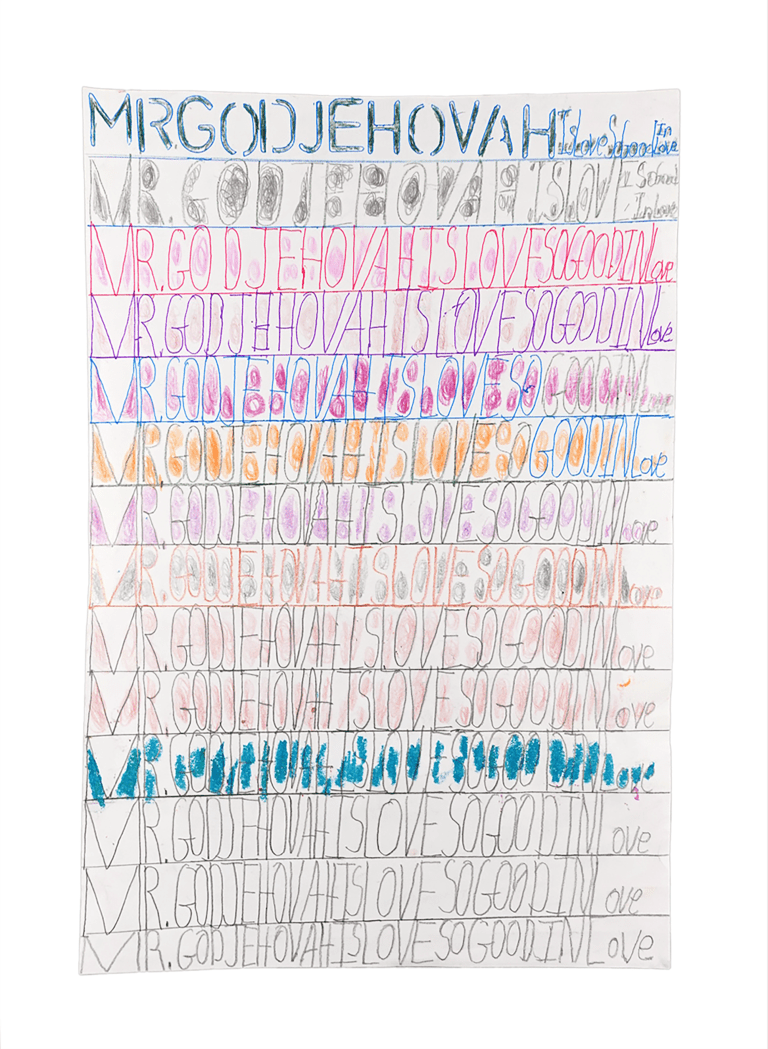 MRGODJEHOVAH IsLove SoGood In Love
MR.GODJEHOVAHISLOVE I SoGood In Love
MR.GODJEHOVAHISLOVESOGOODINLove
MR.GODJEHOVAHISLOVESOGOODINLove
MR.GODJEHOVAHISLOVESOGOODINLove
MR.GODJEHOVAHISLOVESOGOODINLove
MR.GODJEHOVAHISLOVESOGOODINLove
MR.GODJEHOVAHISLOVESOGOODINLove
MR.GODJEHOVAHISLOVESOGOODINLove
MR.GODJEHOVAHISLOVESOGOODINLove
MR.GODJEHOVAHISLOVESOGOODINLove
MR.GODJEHOVAHISLOVESOGOODINLove
MR.GODJEHOVAHISLOVESOGOODINLove
MR.GODJEHOVAHISLOVESOGOODINLove